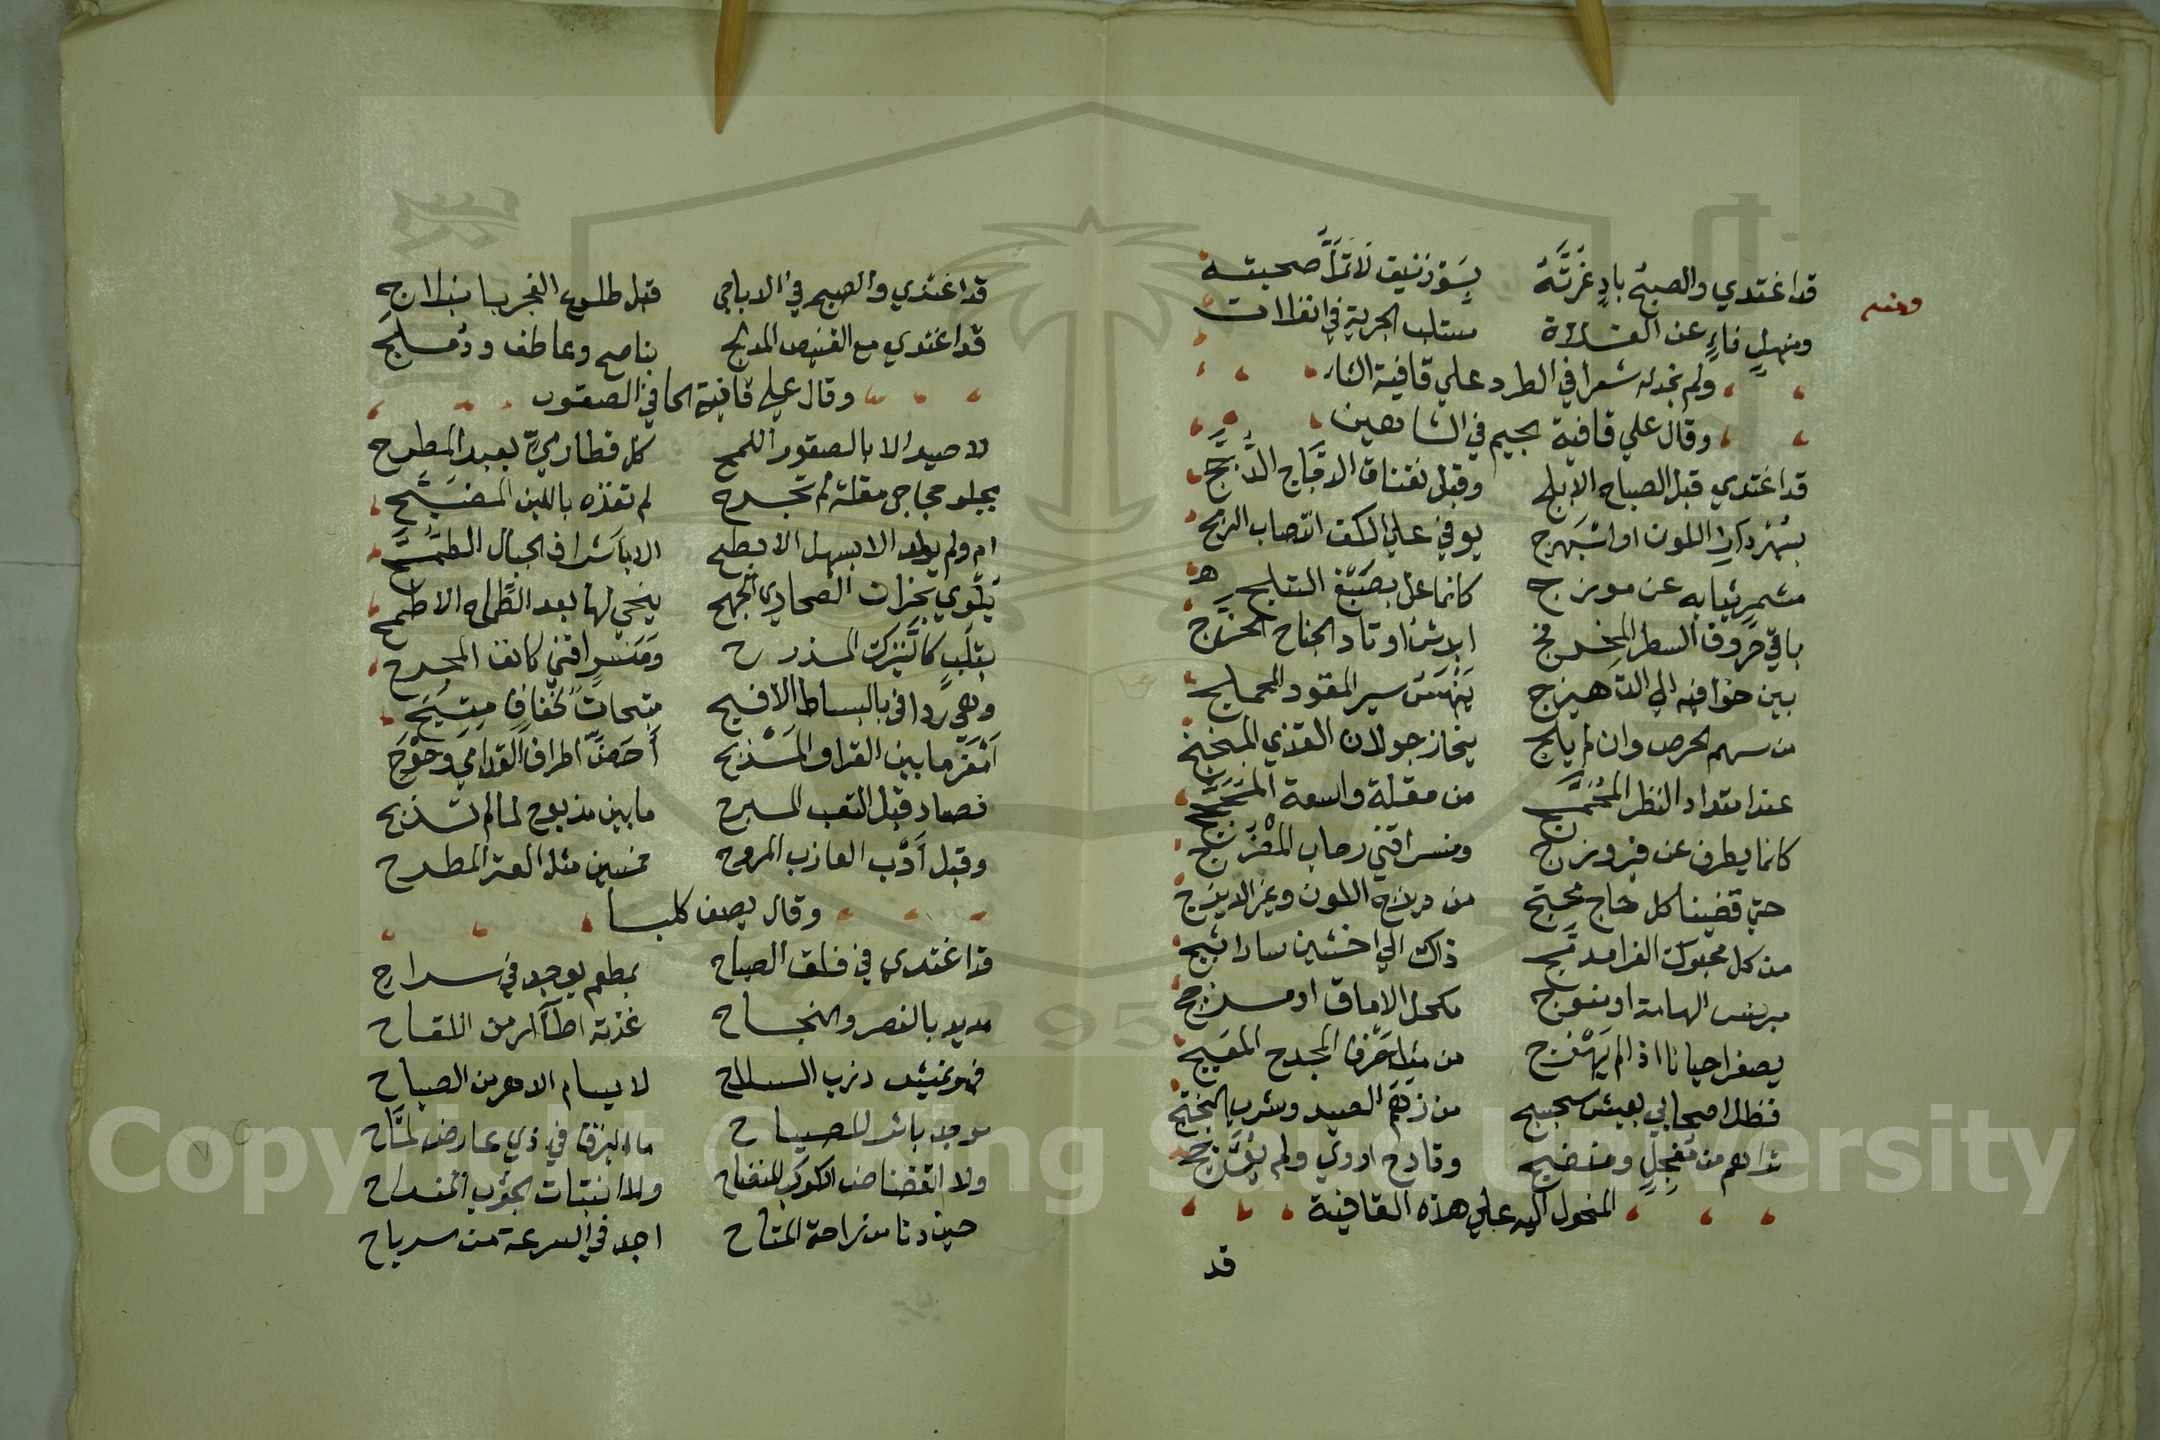 ومنه
قد اغتدي والصبح باد غرته بسوذنيق لا تمل صحبته
ومنهل ناء عن الفلاة مستلب الجرية في انفلات
ولم نجد له شعرا في الطرد علي قافية الثاء
وقال علي قافية الجيم في الشاهين
قد اغتدي قبل الصباح الابلج وقبل نقناق الدجاج الدبج
اللون او اشبهرج يوفي علي الكف انتصاب الزمج
مشمر ثيابه عن موزج كانما عل بصبغ النيلج ه
باقي حروف السطر المخرفج ابرش اوتاد الجناح الخرج
بين خوافيه الي الدهيزج ينهس سير المقود المحملج
من سهم الحرص وان لم يلمج ينحاز جولان القذي المنجنج
عند امتداد النظر المحمج من مقلة واسعة المحجج
كانما يطرف عن فيروزج ومنسر اقني رحاب المضرج
حتي قضينا كل حاج محتج من ديزج اللون وغير الديزج
من كل محبوك القرا مدمج ذاك الي اخشين سارا ثبج
مبرنس الهامة او متوج مكحل الاماق او مزجج
يصفر احيانا اذا لم يهزج من مثل حرف المجدح المعيج
فظل اصحابي بعيش سجسج من زهم الصيد وشرب البختج
تراهم من معجل ومنضج وقادح اوري ولم يؤجج
المنحول اليه علي هذه القافية
قد
قد اغتدي والصبح في الدياجي قبل طلوع الفجر بانبلاج
قد اغتدي مع القنيص المدلج بناصح وعاطف ودملج
وقال علي قافية الحا في الصقور
لا صيد الا بالصقور اللمح كل قطامي بعيد المطرح
يجلو حجاجي مقلة لم تجرح لم تغذه باللبن المضيح
ام ولم يولد الا بسهل الابطح الا باشراف الجبال الطمح
يلوي بخزان الصحاري الجمح ينحي لها بعد الطماح الاطمح
بسلب كالنيزك المذرح ومنسر اقني كانف المجدح
وهي رداف بالبساط الافيح متيحات لخفاف متيح
امغر ما بين القرا والمذبح احص اطراف القدامي وحوح
فصاد قبل التعب المبرح ما بين مذبوح لما لم تذبح
وقبل اوب العازب المروح خمسين مثل العتر المطرح
وقال يصف كلبا
قد اغتدي في فلق الصباح بمطعم يوجد في سراح
مويد بالنصر والنجاح غذته اطار من اللقاح
فهو نجيب ذرب السلاح لا يسام الدهر من الصياح
موجد باشر للصياح ما البرق في ذي عارض لماح
ولا انقضاض الكوكب المنصاح ولا انبتات الجوب المنداح
حين دنا من راحة المتاح اجد في السرعة من سرياح